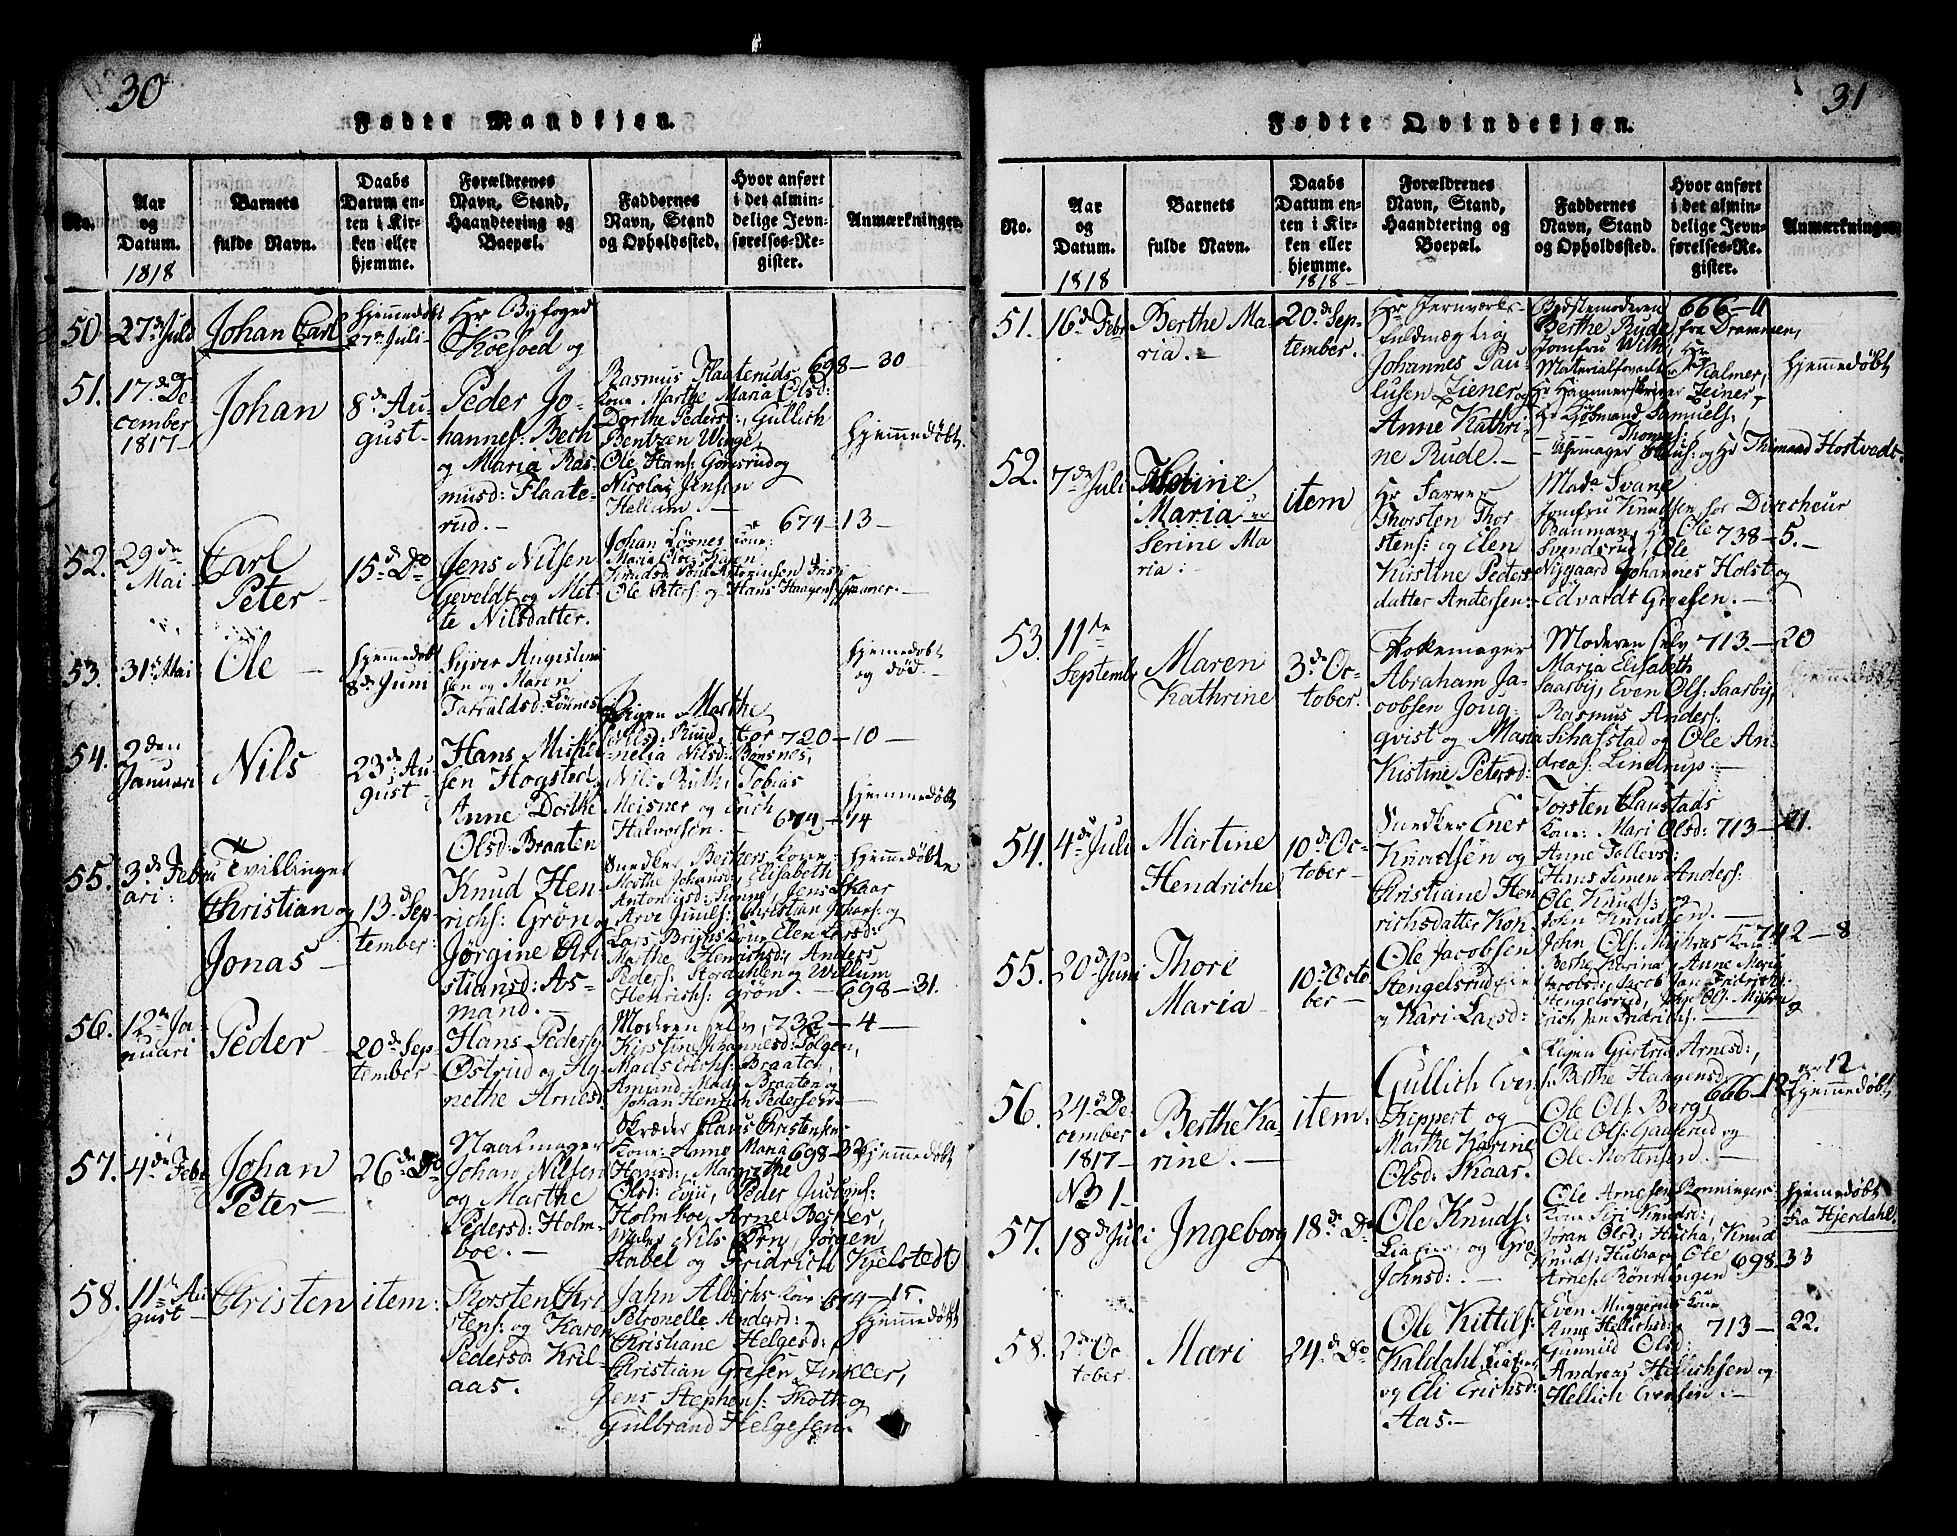 30
Fødte Mandkjøn.
No.
Aar og Datum.
1818
Barnets fulde Navn.
Daabs Datum enten i Kirken eller hjemme.
Forældrenes Navn, Stand, Haandtering og Boepæl.
Faddernes Navn, Stand og Opholdssted.
Hvor anført i det almindelige Jevnførelses-Register.
Anmærkninger.
50. 27de Juli
Johan Carl
Hjemmedøbt
27de Juli
Hr Byfoged
og
51. 17de De-
cember
1817
Johan
8de Au-
gust
Peder Jo-
hannes: Bech
og Maria Ras-
musd: Flaate-
rud.
Rasmus Flaateruds
Kone Marthe Maria Olsd:
Dorthe Peders:, Gullich
Bentzen Winge,
Ole Hans: Gomsrud og
Nicolay Jensen
Hellum.
698 - 30
Hjemmedøbt
52. 29de
Mai
Carl
Peter
15de Do
Jens Nilsen
Geveldt og Met-
te Nilsdatter.
Johan Løsnes Kone:
Ole Peters: og Hans Haagens:
674 - 13
53. 31te Mai
Ole
Hjemmedøbt
8de Juni
Syver
sen og Maren
Hjemmedøbt
og død
54. 2den
Januari
Nils
23de Au-
gust
Hans Mickel-
sen Hogsted,
Anne Dorthe
Olsd: Braaten
Pigen Marthe
Nilsd: Ruud,
Nils Ruth, Tobias
Meisner og Erich
Halvorsen.
720 - 10
Hjemmedøbt
55. 3de Febru-
ari:
Tvillinger
Christian og
Jonas
13de Sep-
tember:
Knud Hen-
richs: Grøn og
Jørgine Chri-
stiansd: As-
mand.
Snedker Beckers Kone:
Marthe Johansd:, Elisabeth
Jens Skaar
Arve Juuls: Christian Johans: og
Marthe Henrichsd:, Anders
Peders: Stordahlen og Willum
Henrichs: Grøn.
674 - 14
Hjemmedøbte
56. 12te Ja-
nuari
Peder
20de Sep-
tember
Hans Peders:
Østrud og Ag-
nethe Arnesd:
Moderen selv,
Kirstine Johannesd: Solgen,
Mads Erichs: Braaten,
Amund Mads: Braaten og
Johan Henrich Pedersen
698 - 31.
732 - 4
57. 4de Febr
Johan
Peter
26de Do
Naalmager
Johan Nilsen
og Marthe
Pedersd: Holm-
boe.
Skræder Claus Christensens
Kone: Anne Maria
Hansd:, Margrethe
Olsd: Evju, Peder Juul:
Holmboe, Arne Becker,
Nils Ørn, Jørgen
Stabel og Fridrich Kjelstedt
698 - 32
Hjemmedøbt
58. 11te Au-
gust
Christen
item:
Thorsten Chri-
stens: og Karen
Pedersd: Kril-
aas.
Jahn Albichs Kone:
Petronelle Andersd:,
Christiane Helgesd:,
Christian Gresen Tinkler,
Jens Stephens: Thoth og
Gulbrand Helgesen.
674 - 15.
Hjemmedøbt
31
Fødte Qvindekjøn.
No.
Aar og Datum.
1818
Barnets fulde Navn.
Daabs Datum enten i Kirken eller hjemme.
1818
Forældrenes Navn, Stand, Haandtering og Boepæl.
Faddernes Navn, Stand og Opholdssted.
Hvor anført i det almindelige Jevnførelses-Register.
Anmærkninger.
51. 16de Febr
Berthe Ma-
ria.
20de Sep-
tember.
Hr Jernværks-
fuldmægtig
Johannes Pau-
lusen Ziener og
Anne Kathri-
ne Rude.
Bedstemoderen
Berthe Rude, fra Drammen,
Jomfru With, Hr
Materialforvalter Kalmer,
Hr Hammerskriver Zeiner,
Hr Kjøbmand Samuels:,
Thomas:
Uhrmager
666 - 11
Hjemmedøbt
52. 7de Juli
Maria
Serine Ma-
ria:
item
Hr Farver
Thorsten Thor-
stens: og Elen
Kirstine Peders-
datter Andersen:
Mada Svane
Jomfru Knudsen, Hr Directeur
Ole
Svendsrud, Ole
Nygaard Johannes Holst og
Edvardt Greesen.
738 - 5.
53. 11te
Septembr
Maren
Kathrine
3de Oc-
tober.
Abraham Ja-
cobsen Joug-
qvist og Maria
Kistine Petersd:
Moderen selv
Maria Elisabeth
Saarby, Even Ols: Saarby,
Rasmus Anders:
Schafstad og Ole An-
dreas: Lindrup.
713 - 20
54. 4de Juli
Martine
Hendriche
10de Oc-
tober
Snedker Ener
Knudsen og
Christiane Hen-
richsdatter
Torsten Claustads
Kone: Mari Olsd:
Anne Tollevs:
Hans Simen Anders:
Ole Knuds: og
John Knudsen.
713 - 21.
55. 20de Juni
Thore
Maria
10de Octo-
ber
Ole Jacobsen
Stengelsrud Eie
og Kari Larsd:
John Ols: Myhras Kone
Anne Marie
Jacobsd:
742 - 8
56. 24de De-
cember
1817
No 31
Berthe Ka-
rine.
item:
Gullich Evens:
Kippert og
Marthe Karine
Olsd: Skaar.
Pigen Gjertrud Arnesd:,
Berthe Haagensd:
Ole Ols: Berg,
Ole Ols: Gaaserud og
Ole Mortensen.
666 - 12
Hjemmedøbt
57. 18de Juli
Ingeborg
18de Do
Ole Knuds:
Liaeie, og Gro
Johnsd:.
Ole Arnesen Rønningens
Kone Siri Knudsd:,
Joran Olsd: Hucha, Knud
Knuds: Hucha og Ole
Arnes: Rønningen
698 - 33
Hjemmedøbt
fra Hjerdahl.
58. 2de Oc-
tober.
Mari
24de Do
Ole Kittils:
Kaldahl, Liaeie,
og Eli Erichsd:
Aas.
Even Muggeruds Kone
Anne Hellichsd:,
Gunnild Olsd:
Andreas Hellichsen og
Hellich Evensen.
713 - 22.